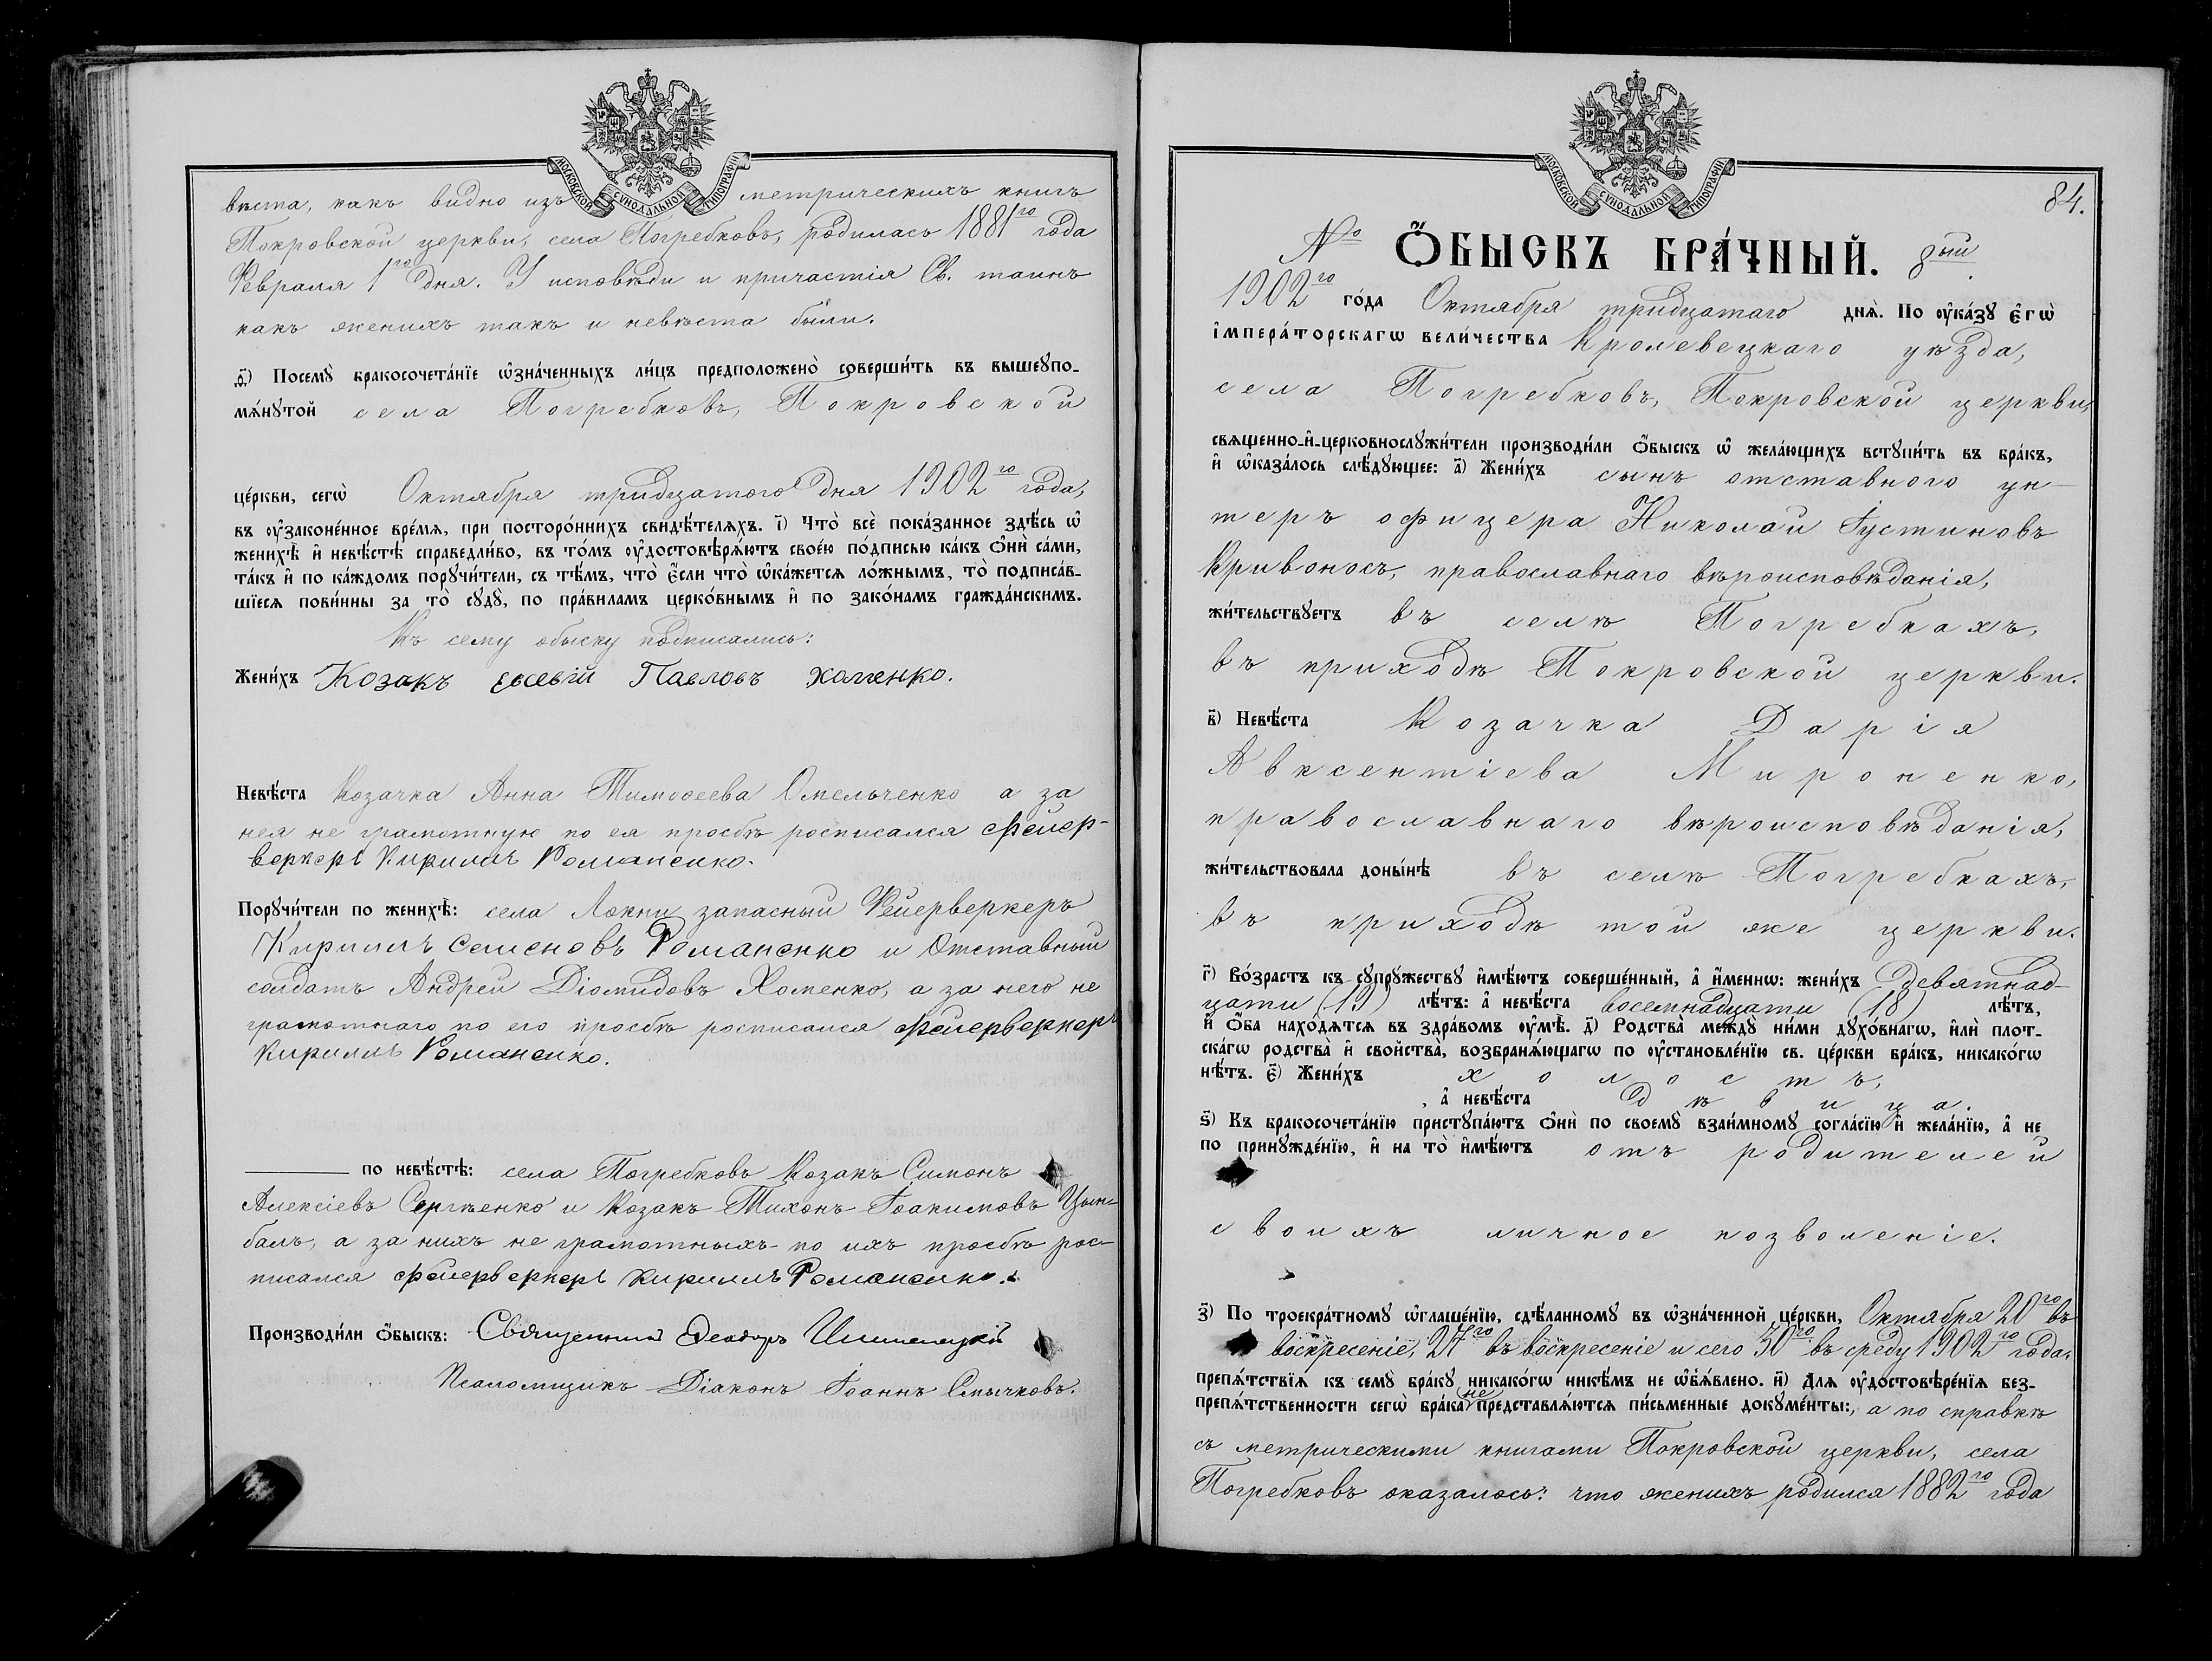 МОСКОВСКОЙ СѴНОДАЛЬНОЙ ТИПОГРАФІИ
вѣста, какъ видно изъ метрическихъ книгъ
Покровской церкви, села Погребковъ, родилась 1881го года
Февраля 1го дня. У исповѣди и причастія Св. таинъ
какъ женихъ такъ и невѣста были.
ѳ҃) Посемꙋ̀ бракосочета́нїе ѡ҆зна́ченныхъ ли́цъ предположено̀ соверши́ть въ вышеꙋпо-
мѧ́нꙋтой села Погребковъ, Покровской
це́ркви, сегѡ̀ Октября тридцатого дня 1902го года,
въ ᲂу҆законе́нное вре́мѧ, при посторо́ннихъ свидѣ́телѧхъ. і҃) Что̀ всѐ пока́занное здѣ́сь ѡ҆
женихѣ̀ и҆ невѣ́стѣ справедли́во, въ то́мъ ᲂу҆достовѣрѧ́ютъ свое́ю по́дписью ка́къ ѻ҆нѝ са́ми,
та́къ и҆ по ка́ждомъ порꙋчи́тели, съ тѣ́мъ, что̀ є҆́сли что̀ ѡ҆ка́жетсѧ ло́жнымъ, то̀ подписа́в-
шїесѧ пови́нны за то̀ сꙋдꙋ̀, по пра́виламъ церко́внымъ и҆ по зако́намъ гражда́нскимъ.
Къ сему обыску подписались:
Жени́хъ Козакъ Евсевій Павловъ Хоменко.
Невѣ́ста Козачка Анна Тимоѳеева Омельченко а за
нея не грамотную по ея просьбѣ росписался фейер-
веркеръ Кириллъ Романенко.
Порꙋчи́тели по женихѣ̀: села Локни запасный Фейерверкеръ
Кириллъ Семеновъ Романенко и Отставный
солдатъ Андрей Діомидовъ Хоменко, а за него не
грамотнаго по его просьбѣ росписался фейерверкеръ
Кириллъ Романенко.
по невѣ́стѣ: села Погребковъ Козакъ Симонъ
Алексіевъ Сергѣенко и Козакъ Тихонъ Іоакимовъ Цым-
балъ, а за нихъ не грамотныхъ по ихъ просьбѣ рос-
писался фейерверкеръ Кириллъ Романенко.
Производи́ли ѻ҆́быскъ: Священникъ Ѳеодоръ
Псаломщикъ Діаконъ Іоаннъ Смычковъ.
МОСКОВСКОЙ СѴНОДАЛЬНОЙ ТИПОГРАФІИ
84.
№ Ѻ҆́БЫСКЪ БРА́ЧНЫЙ. 8ый.
1902го го́да Октября тридцатаго днѧ̀. По ᲂу҆ка́зꙋ є҆гѡ̀
і҆мпера́торскагѡ вели́чества Кролевецкаго уѣзда,
села Погребковъ, Покровской церкви,
сващенно-и҆-церковнослꙋжи́тели производи́ли ѻ҆́быскъ ѡ҆ жела́ющихъ встꙋпи́ть въ бра́къ,
и҆ ѡ҆каза́лось слѣ́дꙋющее: а҃) Жени́хъ сынъ отставного ун-
теръ офицера Николай Іустиновъ
Кривоносъ, православнаго вѣроисповѣданія,
жи́тельствꙋетъ въ селѣ Погребкахъ,
въ приходѣ Покровской церкви.
в҃) Невѣ́ста Козачка Дарія
Авксентіева Мироненко,
православнаго вѣроисповѣданія,
жи́тельствовала доны́нѣ въ селѣ Погребкахъ,
въ приходѣ той же церкви.
г҃) Во́зрастъ къ сꙋпрꙋ́жествꙋ и҆мѣ́ютъ соверше́нный, а҆ и҆́меннѡ: жени́хъ девятнад-
цати (19) лѣ́тъ: а҆ невѣ́ста восемнадцати (18) лѣ́тъ,
и҆ ѻ҆́ба нахо́дѧтсѧ въ здра́вомъ ᲂу҆мѣ̀. д҃) Родства̀ междꙋ̀ ни́ми дꙋхо́внагѡ, и҆лѝ плот-
ска́гѡ родства̀ и҆ свойства̀, возбранѧ́ющагѡ по ᲂу҆становле́нїю св. це́ркви бра́къ, никако́гѡ
нѣ́тъ. є҃) Жени́хъ холостъ,
а҆ невѣ́ста дѣвица.
ѕ҃) Къ бракосочета́нїю пристꙋпа́ютъ ѻ҆нѝ по своемꙋ̀ взаи́мномꙋ согла́сїю и҆ жела́нїю, а҆ не
по принꙋжде́нїю, и҆ на то̀ и҆мѣ́ютъ отъ родителей
своихъ личное позволеніе.
з҃) По троекра́тномꙋ ѡ҆глаше́нїю, сдѣ́ланномꙋ въ ѡ҆зна́ченной це́ркви, Октября 20го въ
воскресеніе, 27го въ воскресеніе и сего 30го въ среду 1902го года,
препѧ́тствїѧ къ семꙋ̀ бра́кꙋ никако́гѡ никѣ́мъ не ѡ҆б̾ѧ́влено. и҃) Длѧ ᲂу҆достовѣре́нїѧ без-
препѧ́тственности сегѡ̀ бра́ка не представлѧ́ютсѧ пи́сьменные докꙋме́нты:, а по справкѣ
съ метрическими книгами Покровской церкви, села
Погребковъ оказалось: что женихъ родился 1882го года